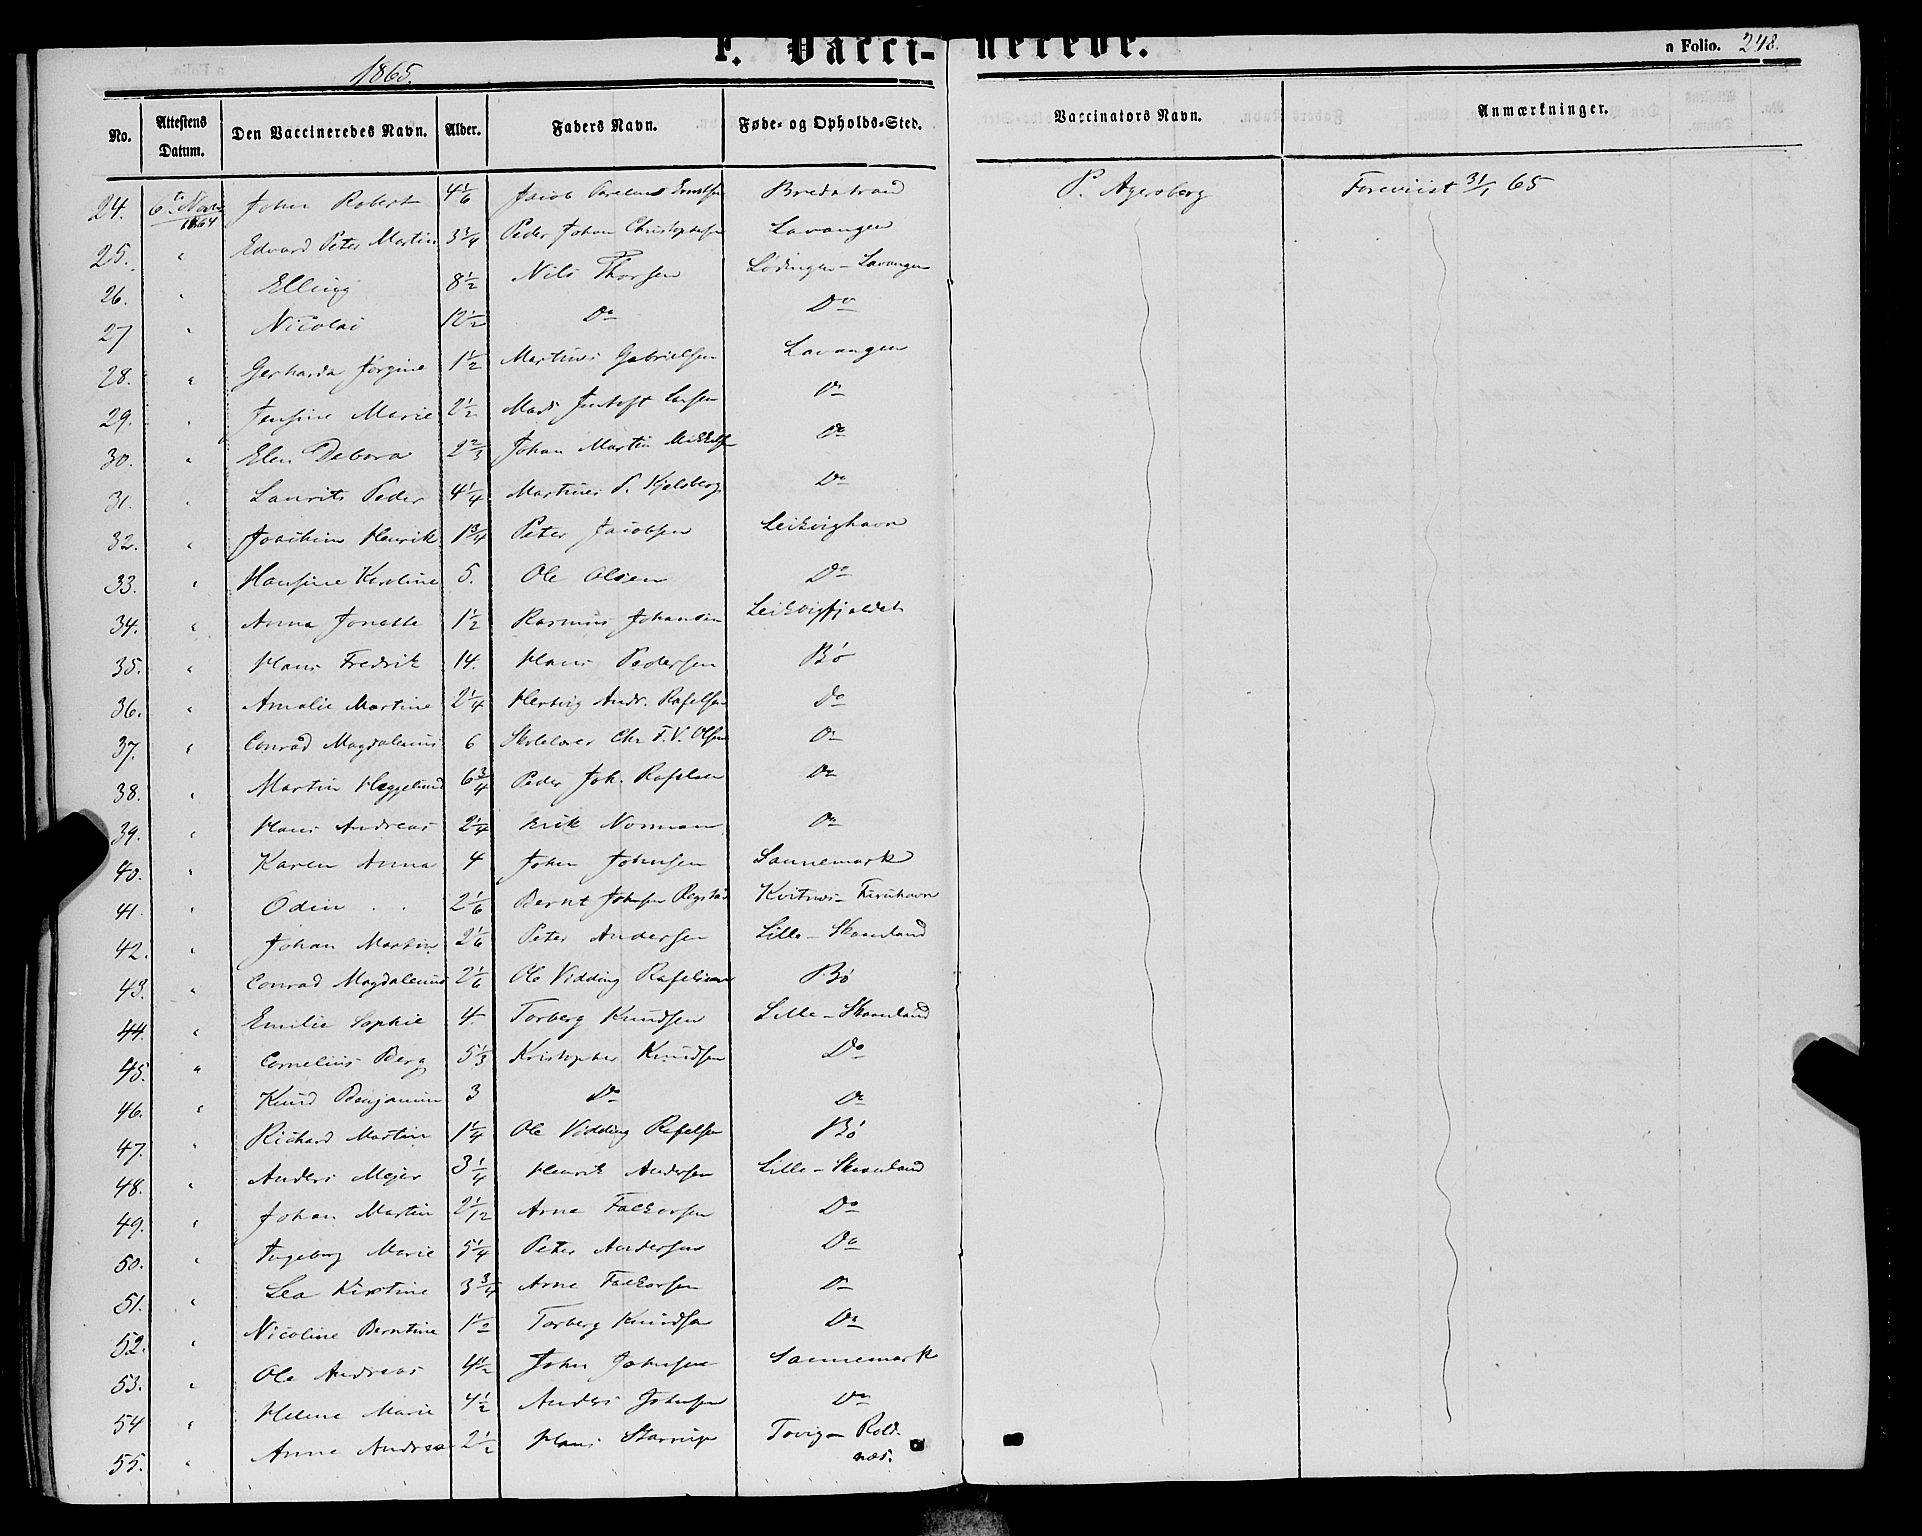 F. Vacci-nerede.
n Folio. 248.
1865.
No. Attestens Datum. Den Vaccineredes Navn. Alder. Faders Navn. Føde- og Opholds-Sted. Vaccinators Navn. Anmærkninger.
24. 6te Novb 1864 Johan Robert 4 1/6 Jacob Parelius Bredstrand P. Agersborg Foreviist 31/1 65
25. " Edvard Peter Martin 3 3/4 Peder Johan Christophersen Lavangen
26. " Elling 8 1/2 Nils Thorsen Lødingen - Lavangen
27 " Nicolai 12 1/2 Do Do
28. " Gerharda Jørgine 1 1/2 Martinus Gabrielsen Lavangen
29. " Jensine Marie 2 1/2 Mads Jentoft Larsen Do
30. " Elen Debora 2 2/3 Johan Martin Mikkelsen Do
31. " Laurits Peder 4 1/4 Martines P. Kjelsberg Do
32. " Joachim Henrik 1 3/4 Peter Jacobsen Leikvighavn
33. " Hansine Karoline 5. Ole Olsen Do
34. " Anna Jonette 1 1/2 Rasmus Johansen Leikvigfjeldet
35. " Hans Fredrik 14. Hans Pedersen Bö
36. " Amalie Martine 2 1/4 Hertvig Andr. Rafelsen Do
37. " Conrad Magdalenus 6 Skolelærer Chr F. V. Olsen Do
38. " Martin Heggelund 6 3/4 Peder Joh. Rafelsen Do
39. " Hans Andreas 2 1/4 Erik Norman Do
40. " Karen Anna 4 John Johnsen Sannemark
41. " Odin 2 1/6 Bernt Johnsen Kvitnes - Furuhavn
42. " Johan Martin 2 1/6 Peter Andersen Lille - Skaanland
43. " Conrad Magdalenus 2 1/6 Ole Vidding Rafelsen Bö
44. " Emilie Sophie 4. Torberg Knudsen Lille - Skaanland
45. " Cornelius Berg 5 1/3 Kristopher Knudsen Do
46. " Knud Benjamin 3 Do Do
47. " Richard Martin 1 1/4 Ole Vidding Rafelsen Bö
48. " Anders Mejer 3 1/4 Henrik Andersen Lille - Skaanland
49. " Johan Martin 2 1/12 Arne Falkorsen Do
50. " Ingeborg Marie 5 1/4 Peter Andersen Do
51. " Lea Kirstine 3 3/4 Arne Falkorsen Do
52. " Nicoline Berntine 1 1/2 Torberg Knudsen Do
53. " Ole Andreas 4 1/2 John Johnsen Sannemark
54 " Helene Marie 4 1/2 Anders Johnsen Do
55. " Anne Andrea 2 1/2 Hans Starrup Tovig - Rold-
næs.